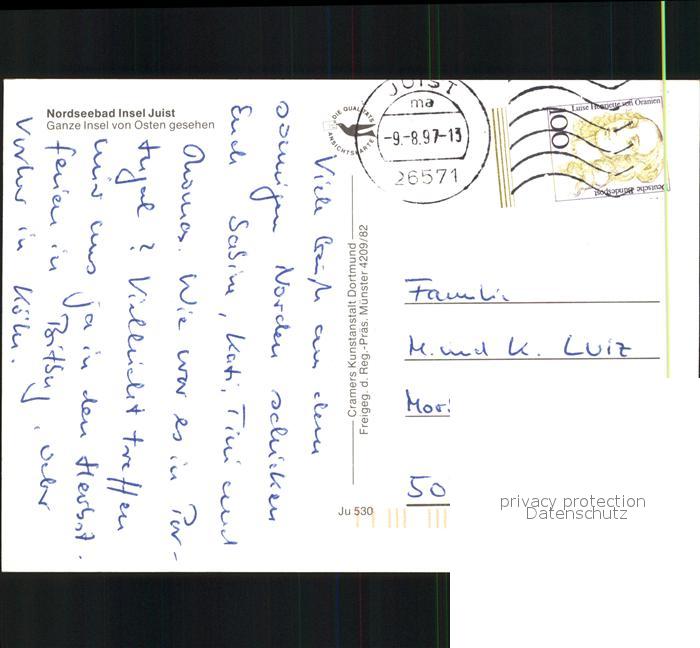 Nordseebad Insel Juist
Ganze Insel von Osten gesehen
Viele Grüße aus dem
sonnigen Norden schicken
Euch Sabine, Kati, Tini und
Thomas. Wie war es in Por-
tugal? Vielleicht treffen
wir uns ja in den Herbst-
ferien in Bitburg, oder
vorher in Köln.
DIE QUALITÄTS
ANSICHTSKARTE
Cramers Kunstanstalt Dortmund
Freigeg. d. Reg.-Präs. Münster 4209/82
Ju 530
JUIST
ma
-9.-8.97-13
26571
Luise Henriette von Oranien
100
Deutsche Bundespost
Familie
M. und K. Luiz
50
privacy protection
Datenschutz